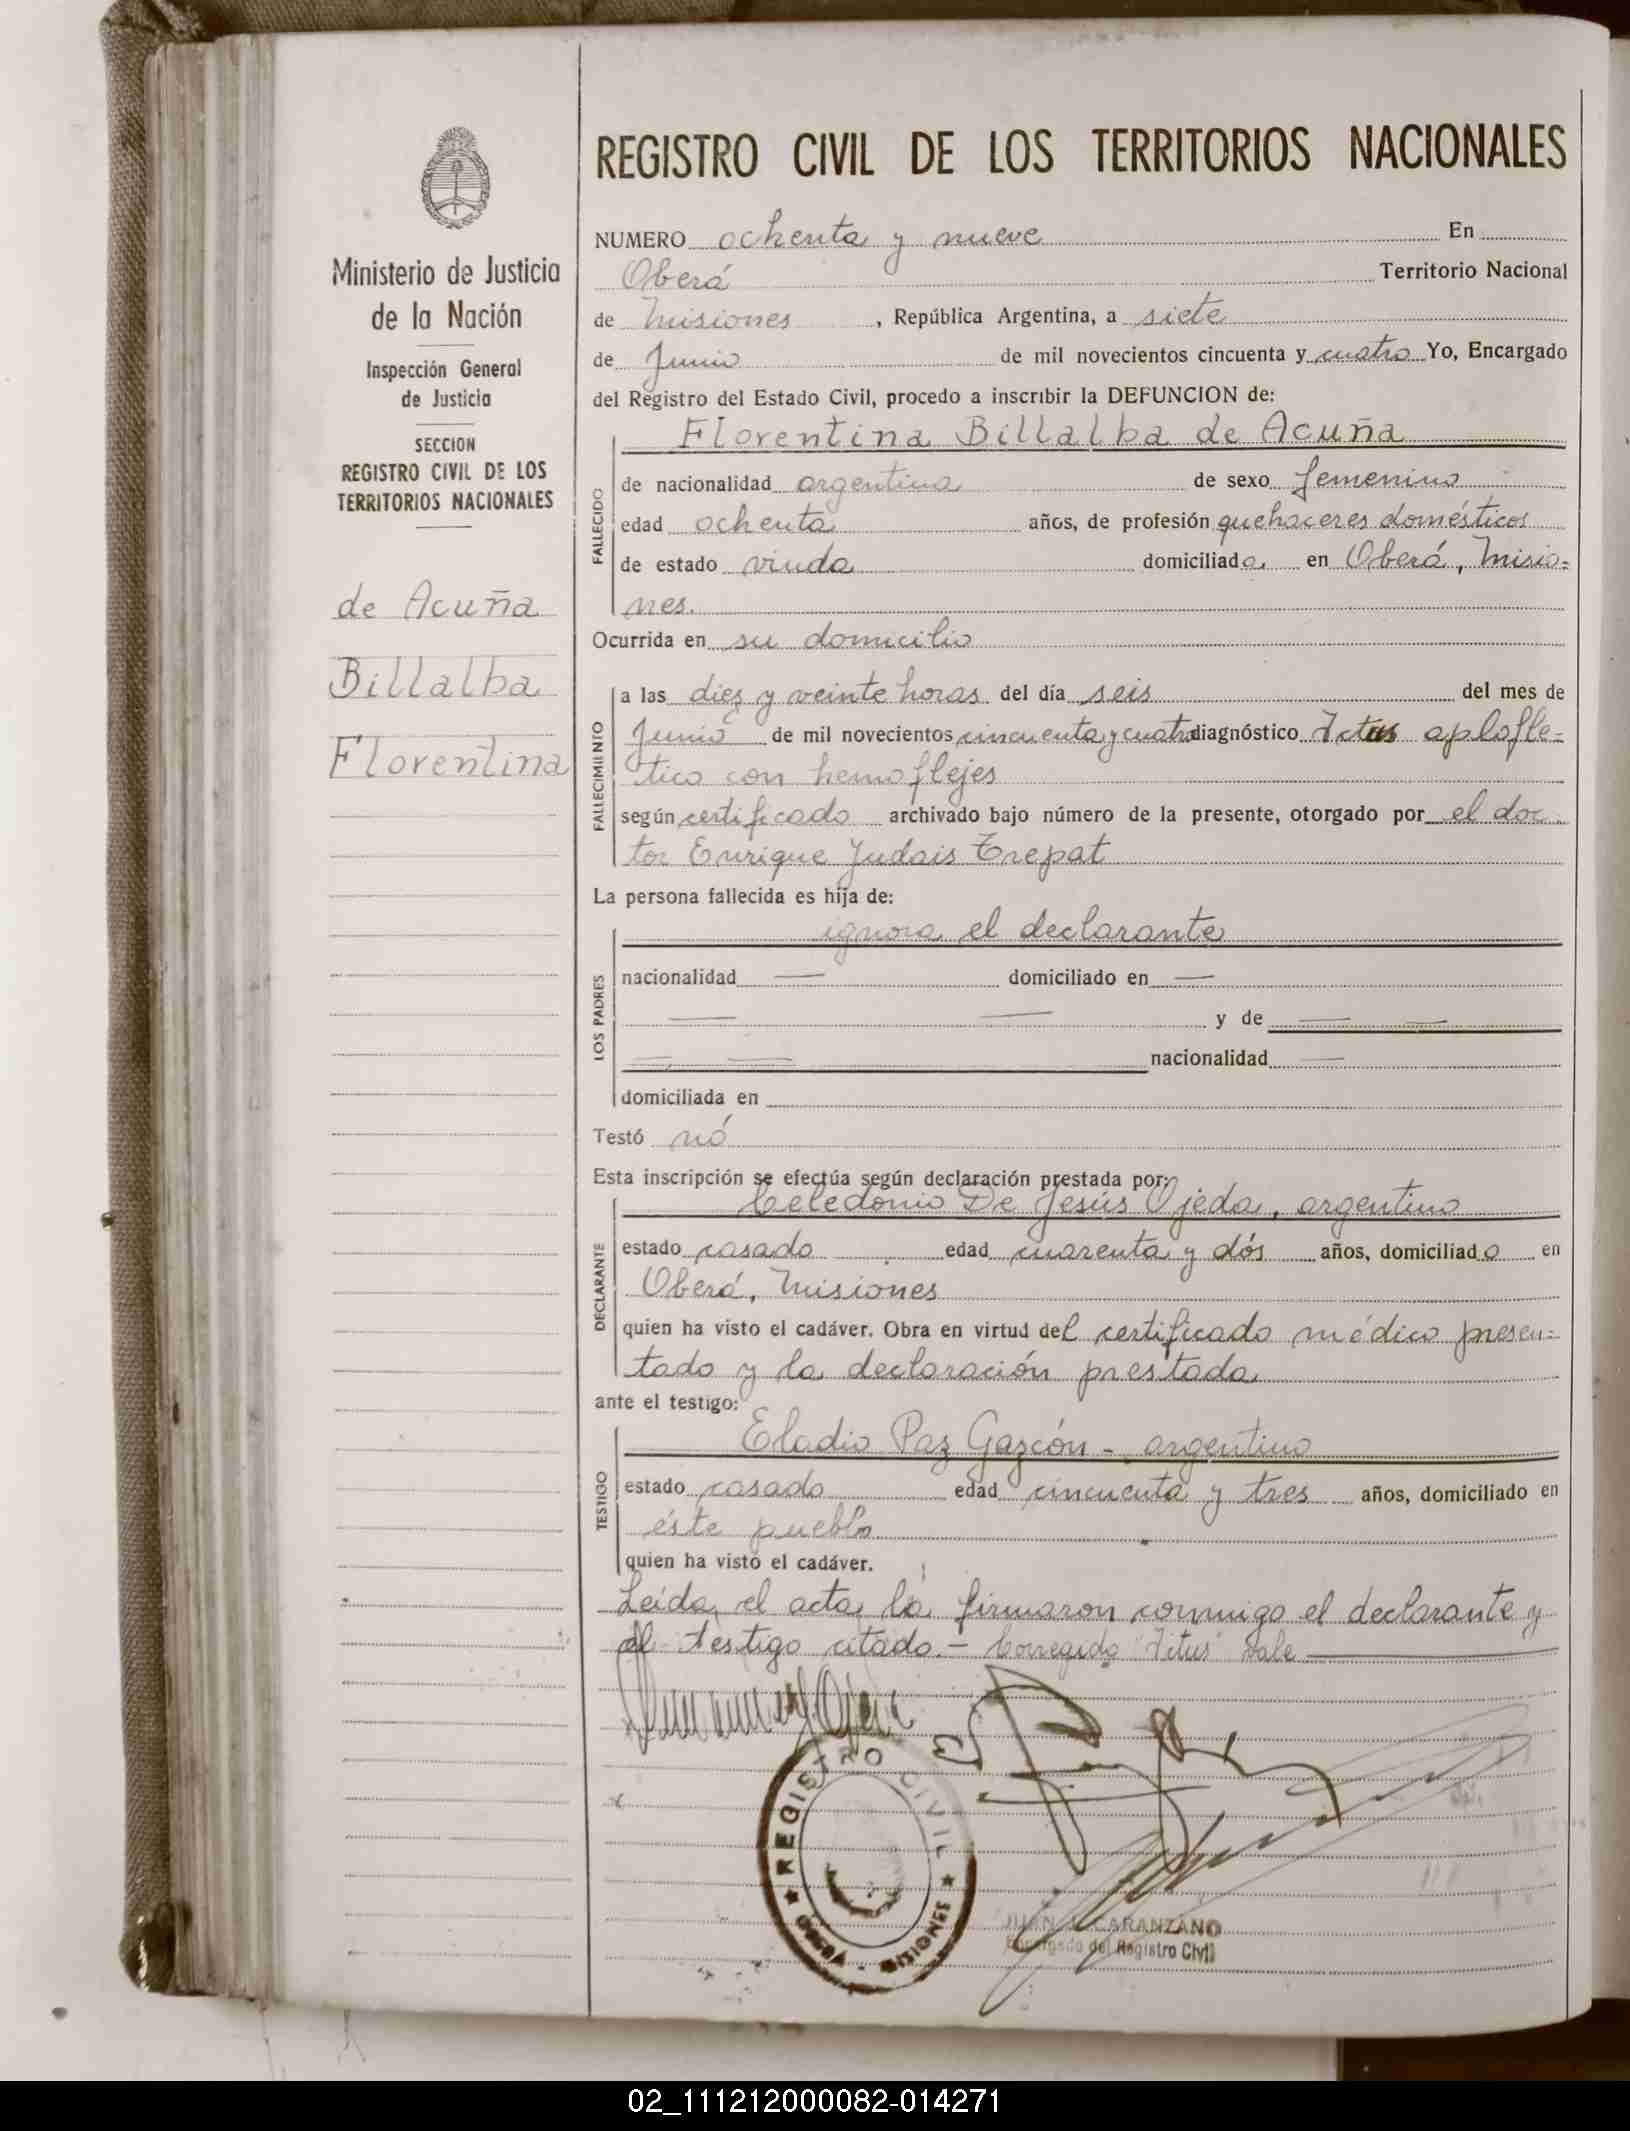 REGISTRO CIVIL DE LOS TERRITORIOS NACIONALES
Ministerio de Justicia
de la Nación
Inspección General
de Justicia
SECCION
REGISTRO CIVIL DE LOS
TERRITORIOS NACIONALES
de Acuña
Billalba
Florentina
NUMERO ochenta y nueve En
Oberá Territorio Nacional
de Misiones, República Argentina, a siete
de Junio de mil novecientos cincuenta y cuatro Yo, Encargado
del Registro del Estado Civil, procedo a inscribir la DEFUNCION de:
Florentina Billalba de Acuña
FALLECIDO
de nacionalidad argentina de sexo femenino
edad ochenta años, de profesión quehaceres domésticos
de estado viuda domiciliada en Oberá, Misio=
nes.
Ocurrida en su domicilio
FALLECIMIENTO
a las diez y veinte horas del día seis del mes de
Junio de mil novecientos cincuenta y cuatro diagnóstico aplofle=
tico con hemoflejes
según certificado archivado bajo número de la presente, otorgado por el doc
tor Enrique Judais Trepat
La persona fallecida es hija de:
ignora el declarante
LOS PADRES
nacionalidad — domiciliado en —
— — y de — —
— — nacionalidad —
domiciliada en
Testó nó
Esta inscripción se efectúa según declaración prestada por:
Celedonio De Jesús Ojeda, argentino
DECLARANTE
estado casado edad cuarenta y dós años, domiciliado en
Oberá, Misiones
quien ha visto el cadáver. Obra en virtud del certificado médico presen=
tado y la declaración prestada
ante el testigo:
Eladio Paz Gazcón - argentino
TESTIGO
estado casado edad cincuenta y tres años, domiciliado en
éste pueblo
quien ha visto el cadáver.
Leida el acta la firmaron conmigo el declarante y
el testigo citado. - Corregido "Ictus" Vale
REGISTRO CIVIL
OBERÁ - MISIONES
JUAN CARANZANO
Encargado del Registro Civil
02_111212000082-014271